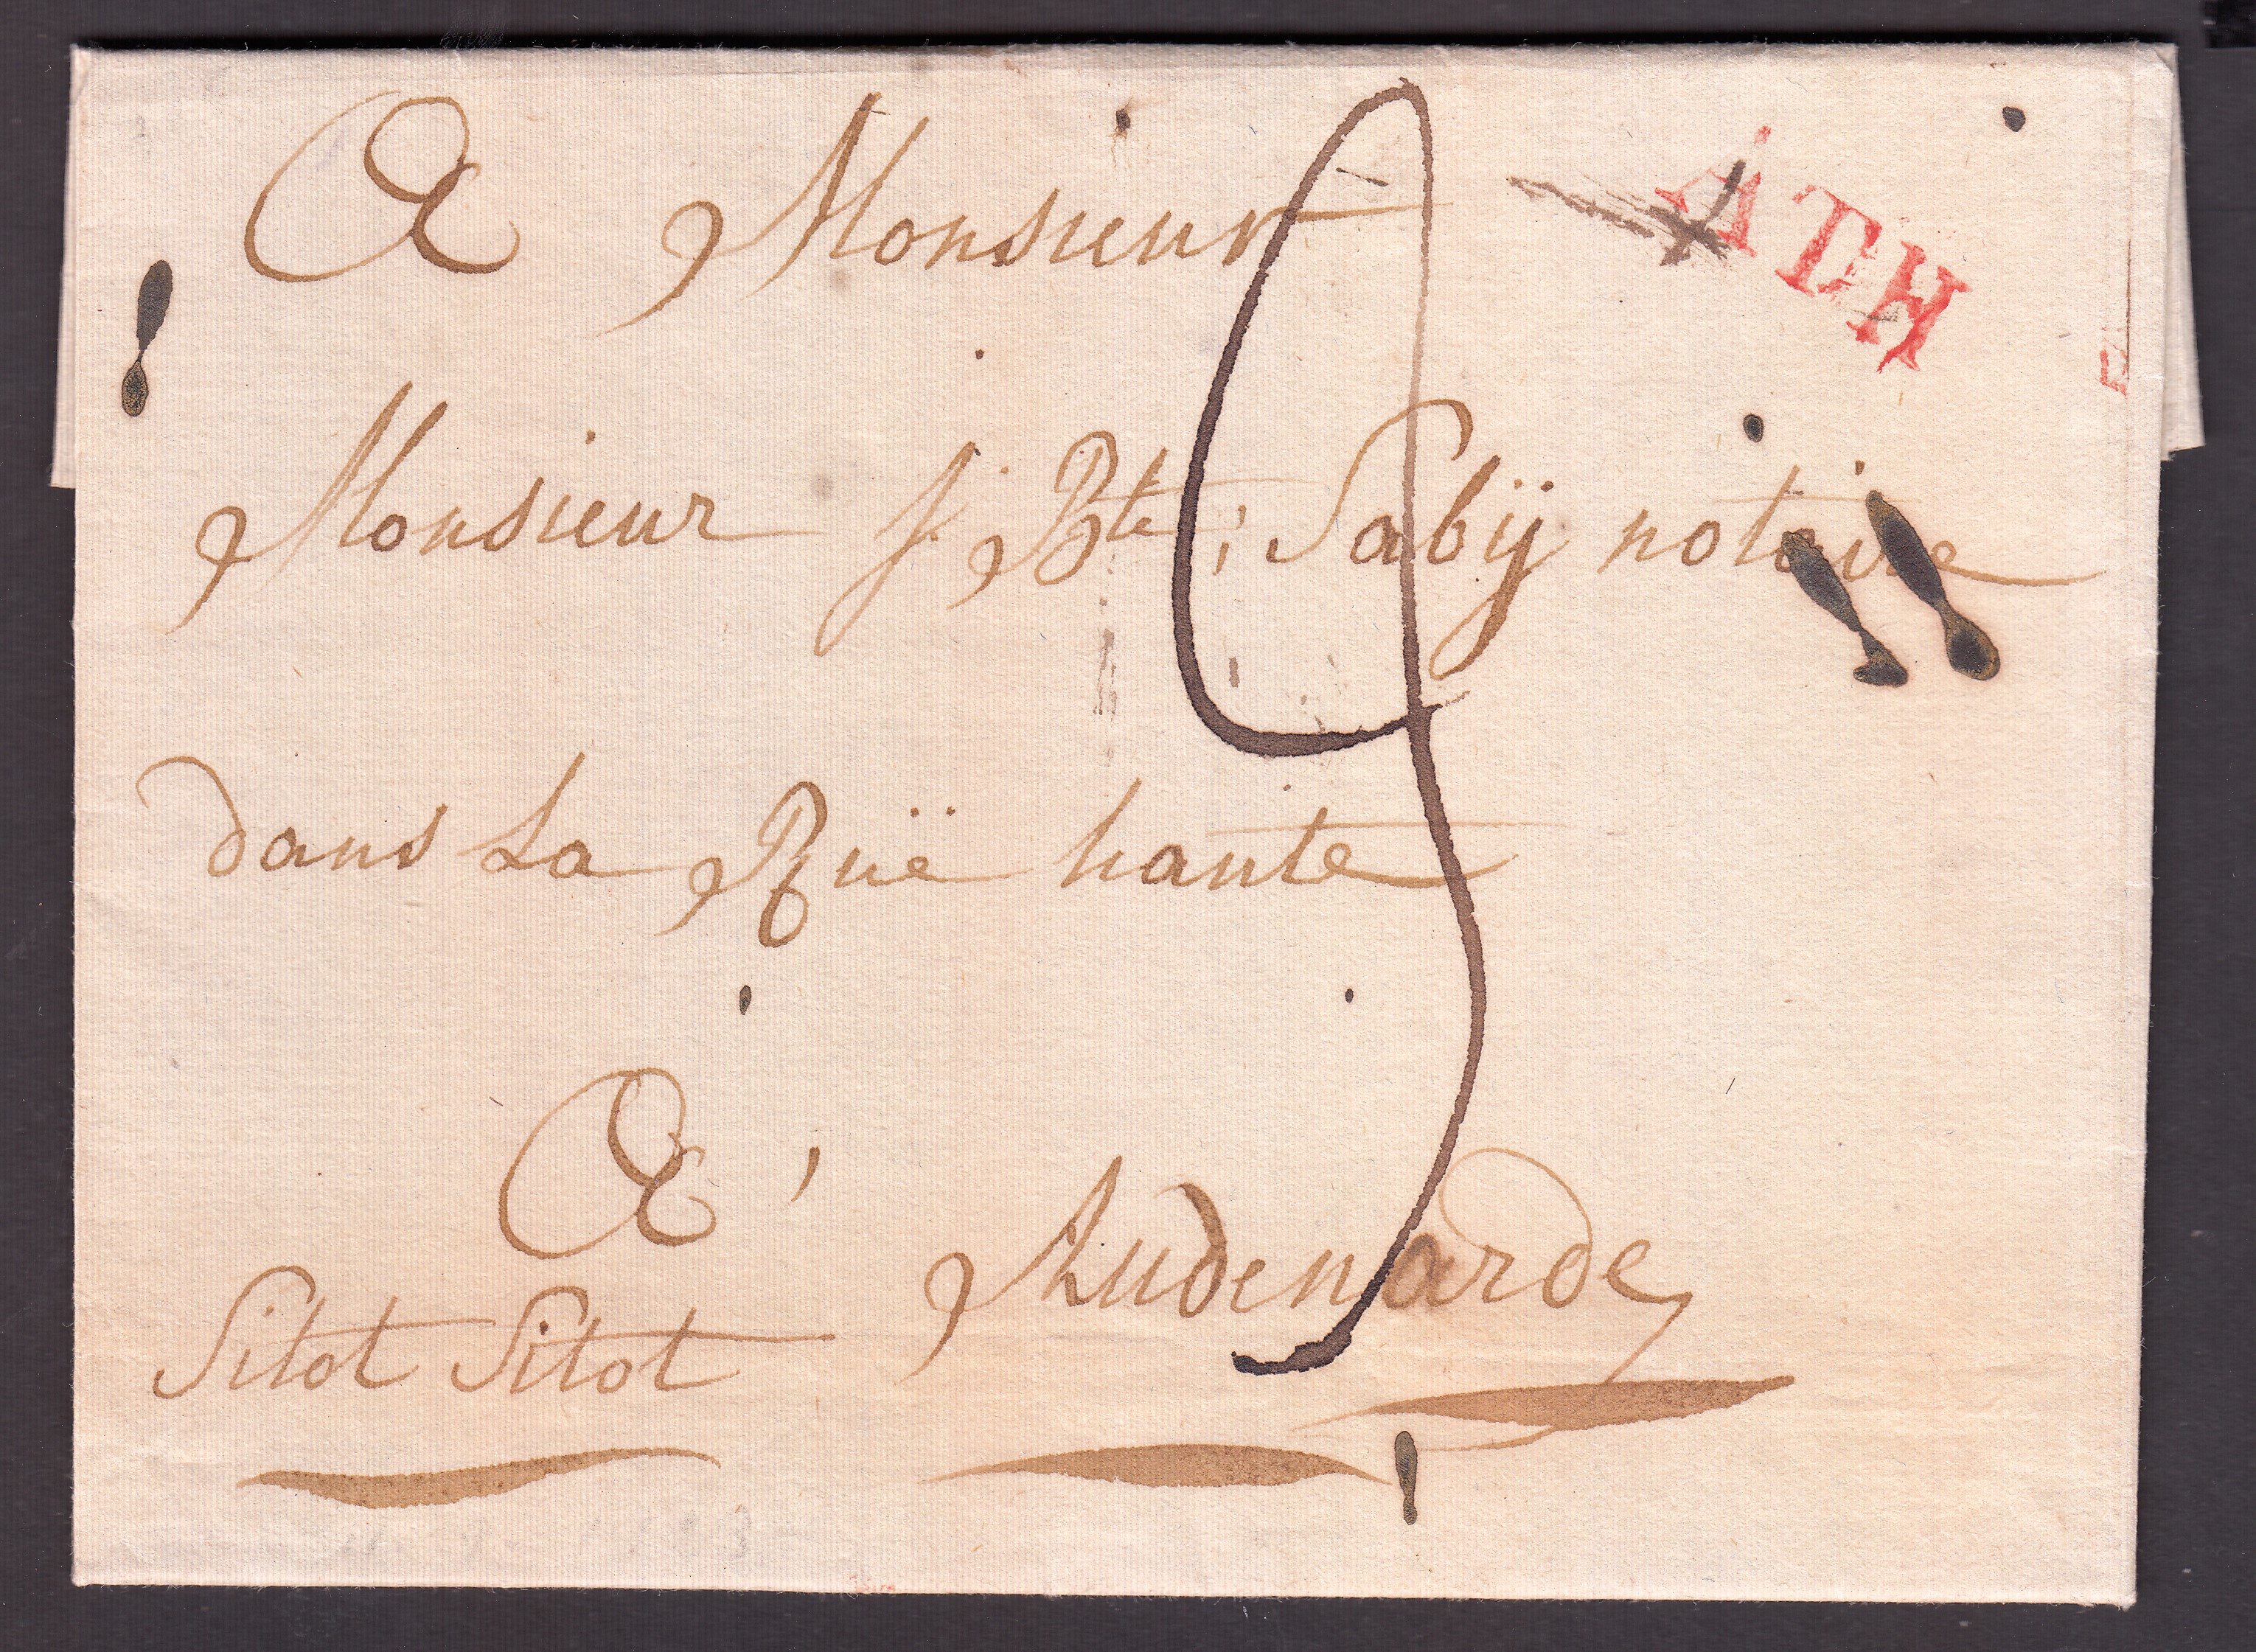 A Monsieur
ATH
Monsieur J: Bte; Sabÿ notaire
dans La Ruë haute
A'
Audenarde
Sitot Sitot
9